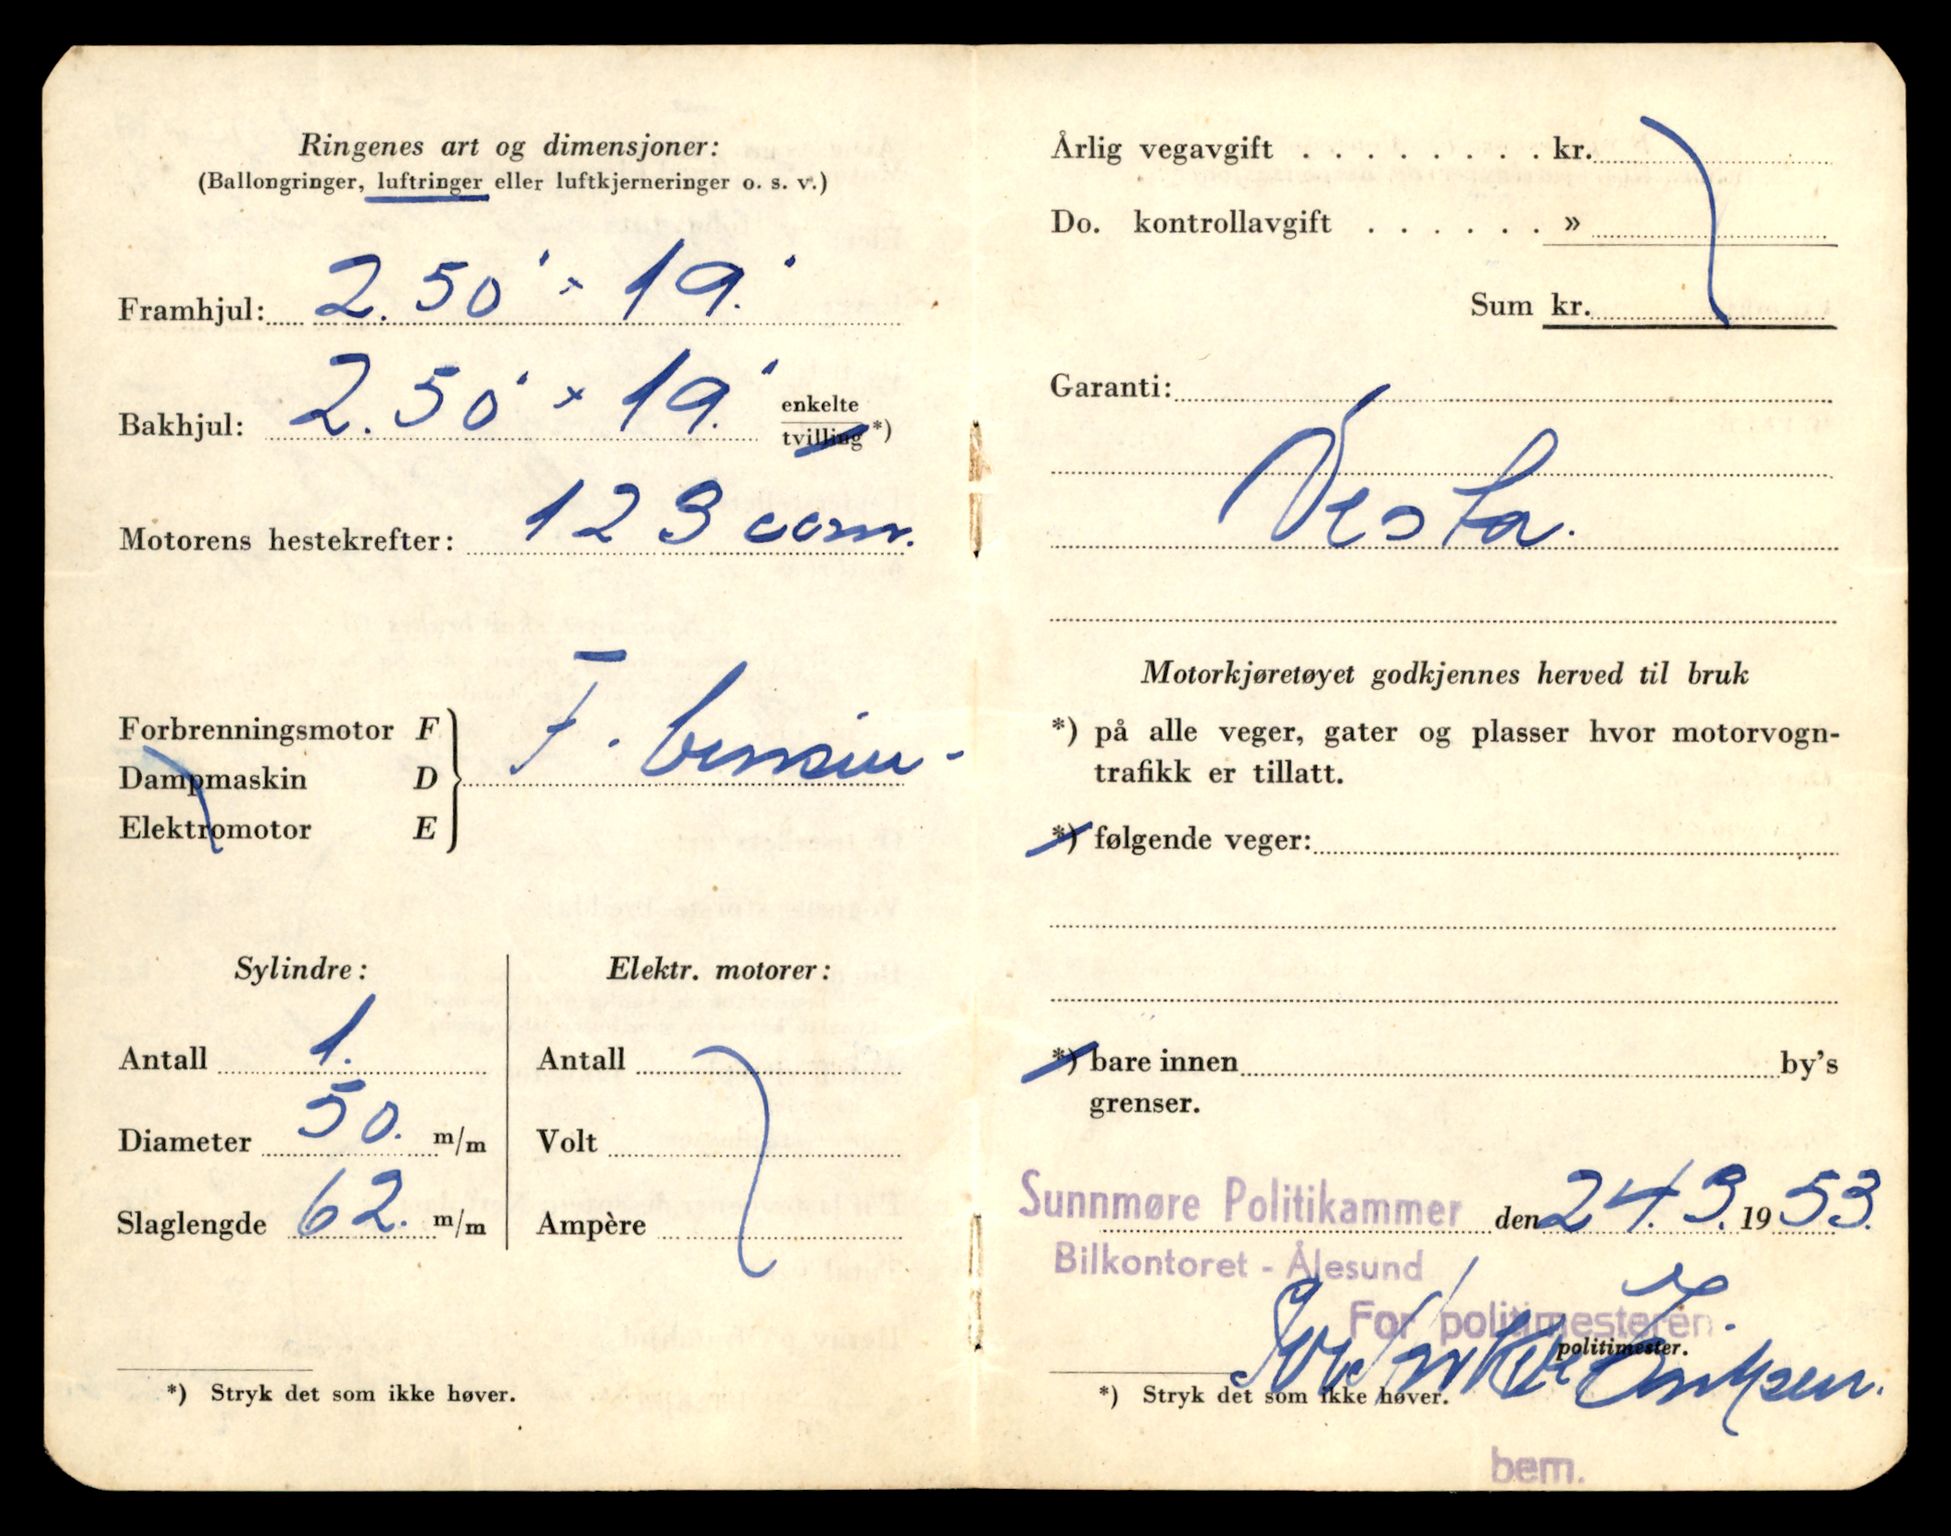 Ringenes art og dimensjoner:
(Ballongringer, luftringer eller luftkjerneringer o. s. v.)
Framhjul: 2.50" × 19"
Bakhjul: 2.50" × 19" enkelte
tvilling *)
Motorens hestekrefter: 123 ccm.
Forbrenningsmotor F
Dampmaskin D F. bensin -
Elektromotor E
Sylindre:
Antall 1.
Diameter 50. m/m
Slaglengde 62. m/m
Elektr. motorer:
Antall
Volt
Ampère
*) Stryk det som ikke høver.
Årlig vegavgift . . . . . . . . kr.
Do. kontrollavgift . . . . . . »
Sum kr.
Garanti:
Vesta.
Motorkjøretøyet godkjennes herved til bruk
*) på alle veger, gater og plasser hvor motorvogn-
trafikk er tillatt.
*) følgende veger:
*) bare innen by's
grenser.
Sunnmøre Politikammer den 24.3. 1953.
Bilkontoret - Ålesund
For politimesteren
politimester.
*) Stryk det som ikke høver.
bem.